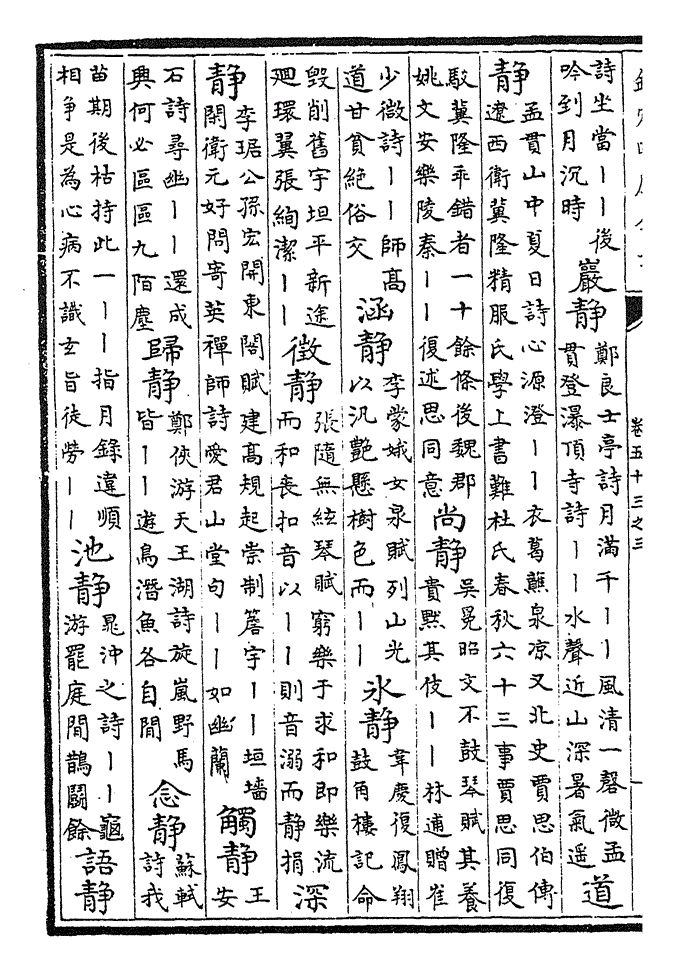 卷五十三之三
詩坐當丨丨後
吟到月沉時
巖靜
鄭良士亭詩月滿千丨丨風清一磬微孟
貫登瀑頂寺詩丨丨水聲近山深暑氣遥
道
靜
孟貫山中夏日詩心源澄丨丨衣葛蘸泉凉又北史賈思伯傳
遼西衛冀隆精服氏學上書難杜氏春秋六十三事賈思同復
駮冀隆乖錯者一十餘條後魏郡
姚文安樂陵秦丨丨復述思同意
尚靜
吳冕昭文不鼓琴賦其養
貴黙其伎丨丨林逋贈崔
少微詩丨丨師髙
道甘貧絶俗交
涵靜
李蒙娥女泉賦列山光
以汎艶懸樹色而丨丨
氷靜
韋慶復鳳翔
鼓角樓記命
毁削舊宇坦平新途
廻環翼張絢潔丨丨
徵靜
張隨無絃琴賦窮樂于求和即樂流
而和喪扣音以丨丨則音溺而靜捐
深
靜
李琚公孫宏開東閤賦建髙規起崇制簷宇丨丨垣墻
閑衛元好問寄英禪師詩愛君山堂句丨丨如幽蘭
觸靜
王
安
石詩尋幽丨丨還成
興何必區區九陌塵
歸靜
鄭俠游天王湖詩旋嵐野馬
皆丨丨遊鳥潛魚各自閒
念靜
蘇軾
詩我
苗期後枯持此一丨丨指月錄違順
相争是為心病不識玄旨徒勞丨丨
池靜
晁沖之詩丨丨龜
游罷庭閒鵲鬭餘
語靜